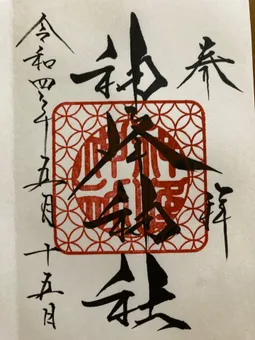 奉拝
神峯神社
令和四年五月十五日